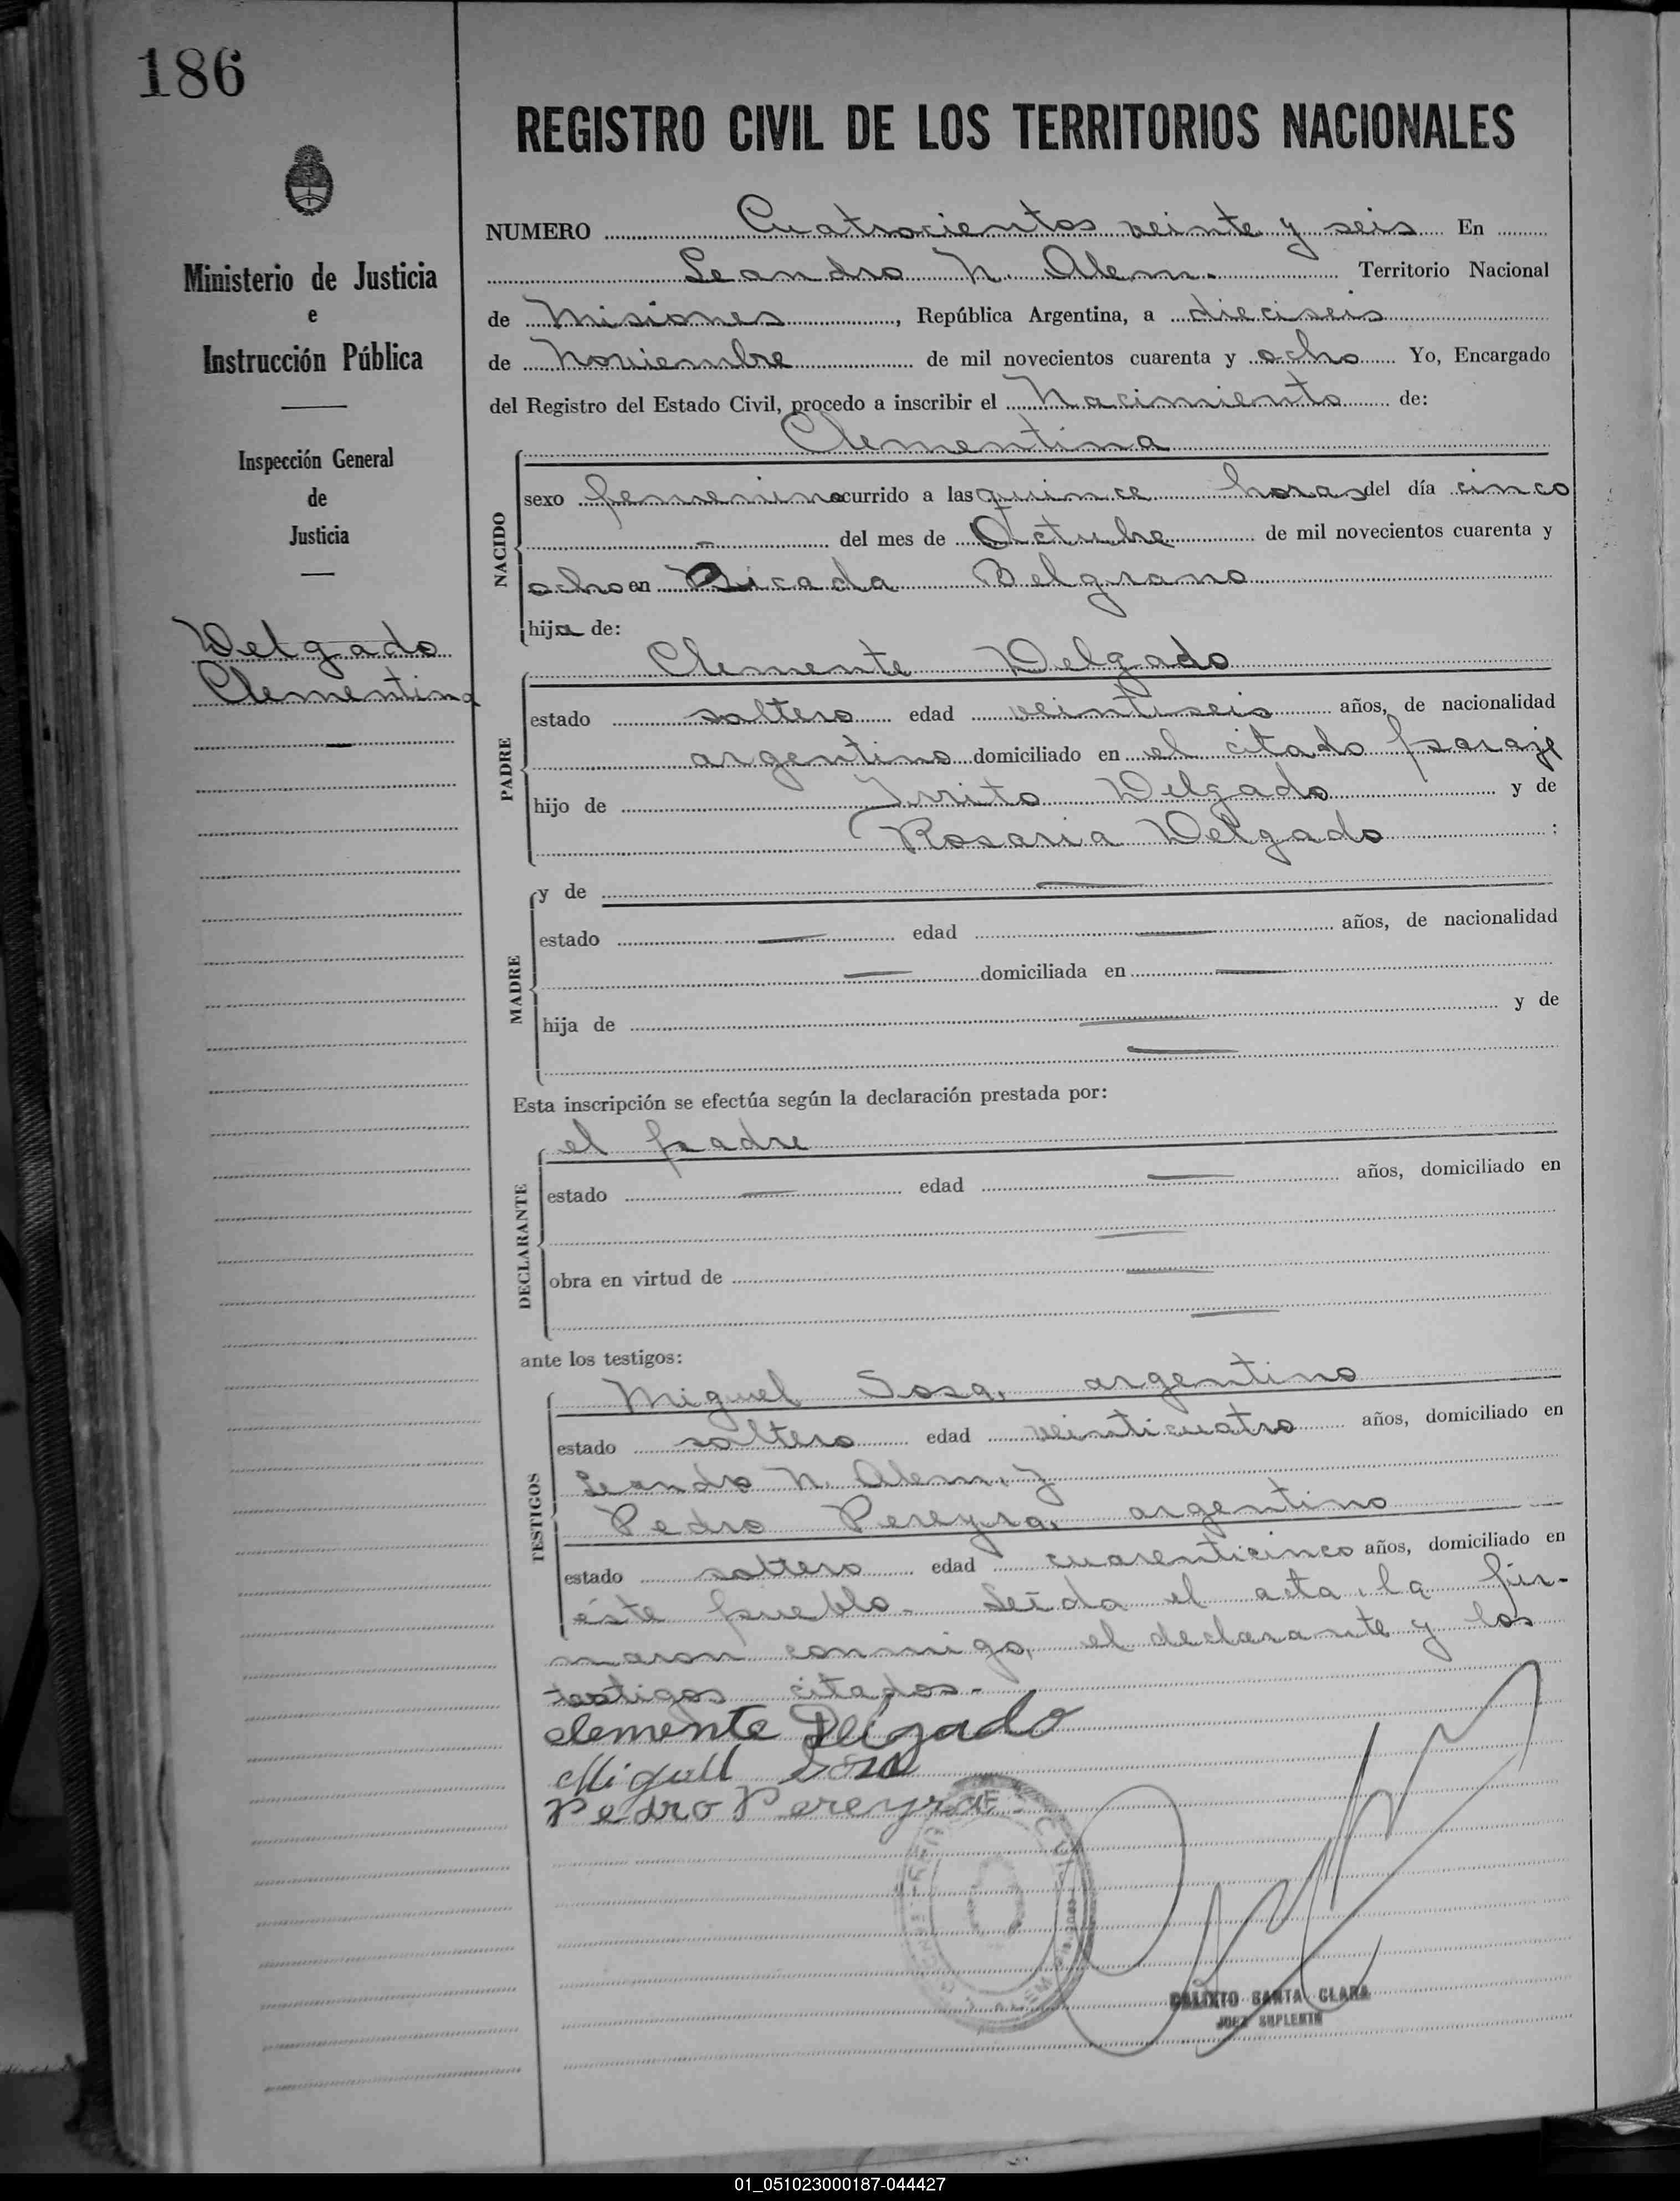 186
REGISTRO CIVIL DE LOS TERRITORIOS NACIONALES
Ministerio de Justicia
e
Instrucción Pública
Inspección General
de
Justicia
Delgado
Clementina
NUMERO Cuatrocientos veinte y seis En
Leandro N. Alem. Territorio Nacional
de Misiones, República Argentina, a dieciseis
de Noviembre de mil novecientos cuarenta y ocho Yo, Encargado
del Registro del Estado Civil, procedo a inscribir el Nacimiento de:
Clementina
NACIDO
sexo femenino ocurrido a las quince horas del día cinco
- del mes de Octubre de mil novecientos cuarenta y
ocho en Picada Belgrano
hija de:
Clemente Delgado
PADRE
estado soltero edad veintiseis años, de nacionalidad
argentino domiciliado en el citado paraje
hijo de Delgado y de
Rosaria Delgado :
MADRE
y de —
estado — edad — años, de nacionalidad
— domiciliada en —
hija de — y de
—
Esta inscripción se efectúa según la declaración prestada por:
el padre
DECLARANTE
estado — edad — años, domiciliado en
—
obra en virtud de —
—
ante los testigos:
Miguel Sosa, argentino
TESTIGOS
estado soltero edad veinticuatro años, domiciliado en
Leandro N. Alem, y
Pedro Pereyra, argentino
estado soltero edad cuarenticinco años, domiciliado en
éste pueblo. Leída el acta, la fir-
maron conmigo, el declarante y los
testigos citados.-
clemente Delgado
Miguel Sosa
Pedro Pereyra
CALIXTO SANTA CLARA
JUEZ SUPLENTE
01_051023000187-044427